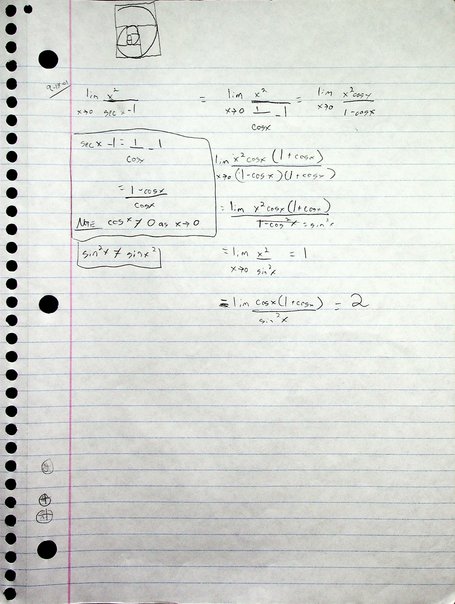 9-18-01
lim x→0 x²/(sec x -1) = lim x→0 x²/(1/cosx -1) = lim x→0 x²cosx/(1-cosx)
sec x -1 = 1/cosx -1
= (1-cosx)/cosx
NOTE cos x ≠ 0 as x→0
sin²x ≠ sinx²
lim x→0 x²cosx(1+cosx)/(1-cosx)(1+cosx)
= lim x²cosx(1+cosx)/1-cos²x = sin²x
= lim x→0 x²/sin²x = 1
= lim cosx(1+cosx)/sin²x = 2